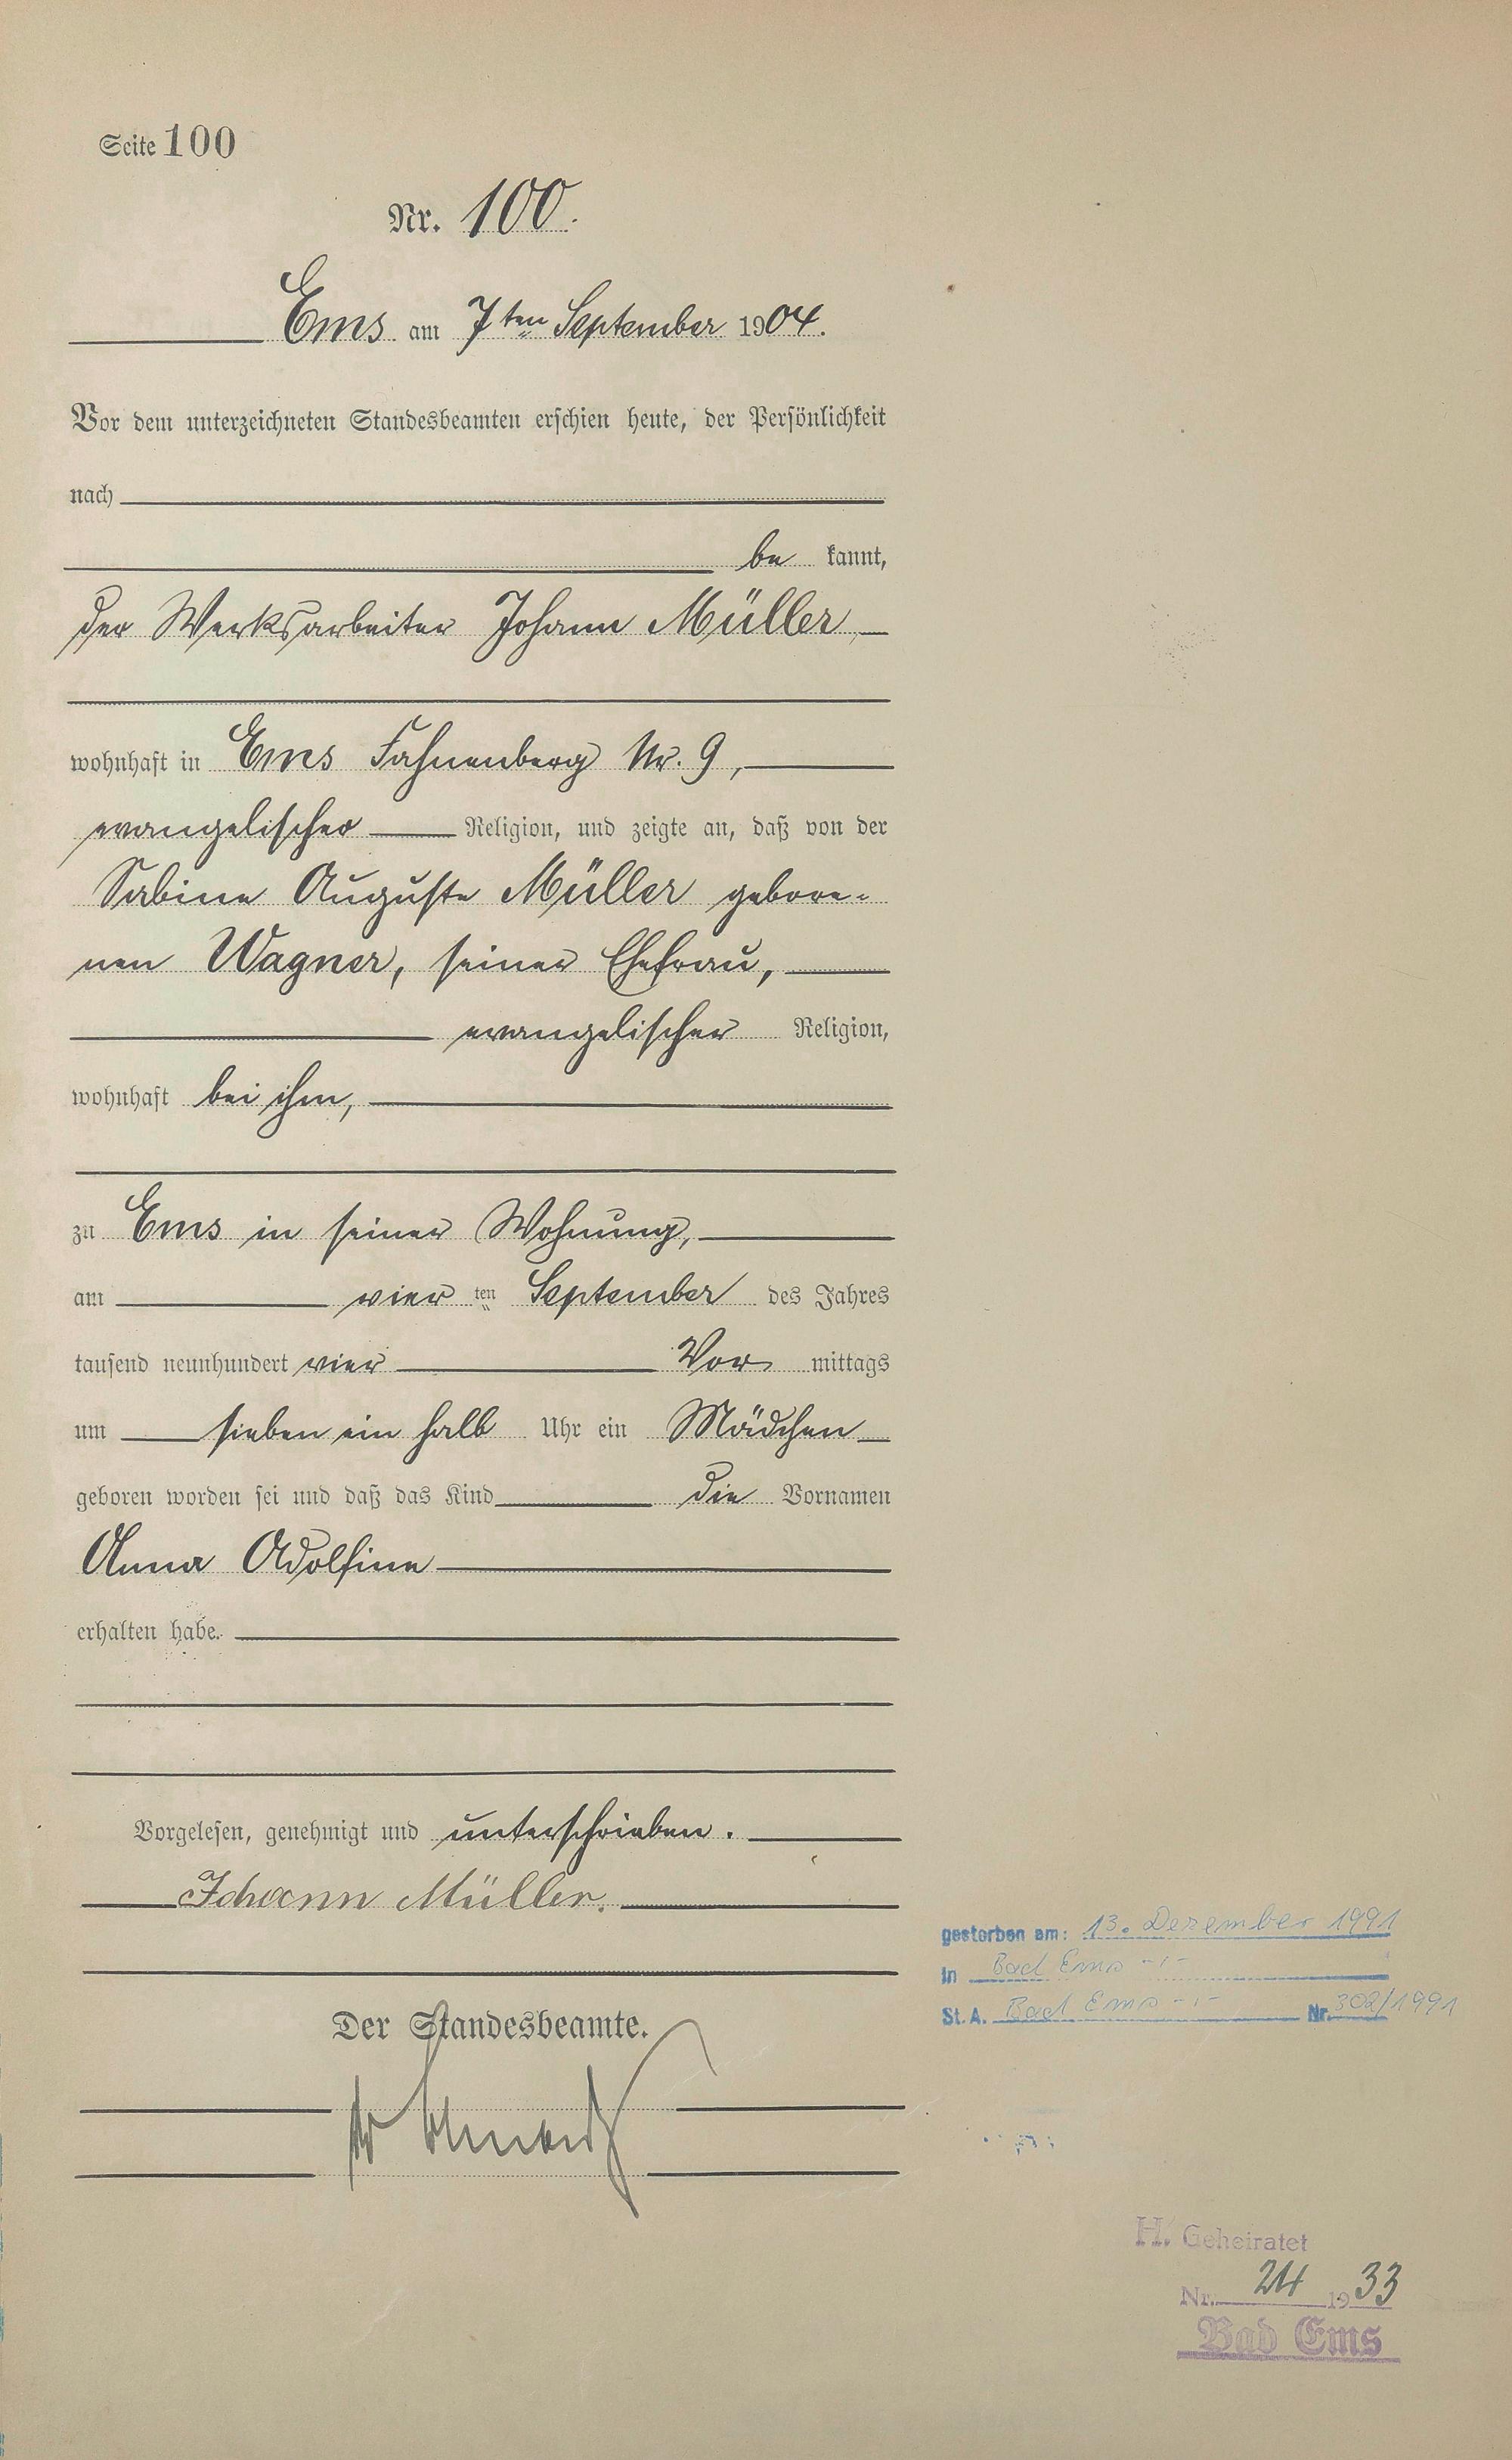 Seite 100
Nr. 100.
Ems am 7ten September 1904.
Vor dem unterzeichneten Standesbeamten erschien heute, der Persönlichkeit
nach
be kannt,
der Werksarbeiter Johann Müller,
wohnhaft in Ems Fahnenberg Nr. 9,
evangelischer Religion, und zeigte an, daß von der
Sabine Auguste Müller gebore-
nen Wagner, seiner Ehefrau,
evangelischer Religion,
wohnhaft bei ihm,
zu Ems in seiner Wohnung,
am vier ten September des Jahres
tausend neunhundert vier Vor mittags
um sieben ein halb Uhr ein Mädchen
geboren worden sei und daß das Kind die Vornamen
Anna Adolfine
erhalten habe.
Vorgelesen, genehmigt und unterschrieben.
Johann Müller.
Der Standesbeamte.
gestorben am: 13. Dezember 1991
in Bad Ems -,-
St. A. Bad Ems -,- Nr. 302/1991
H. Geheiratet
Nr. 24 1933
Bad Ems